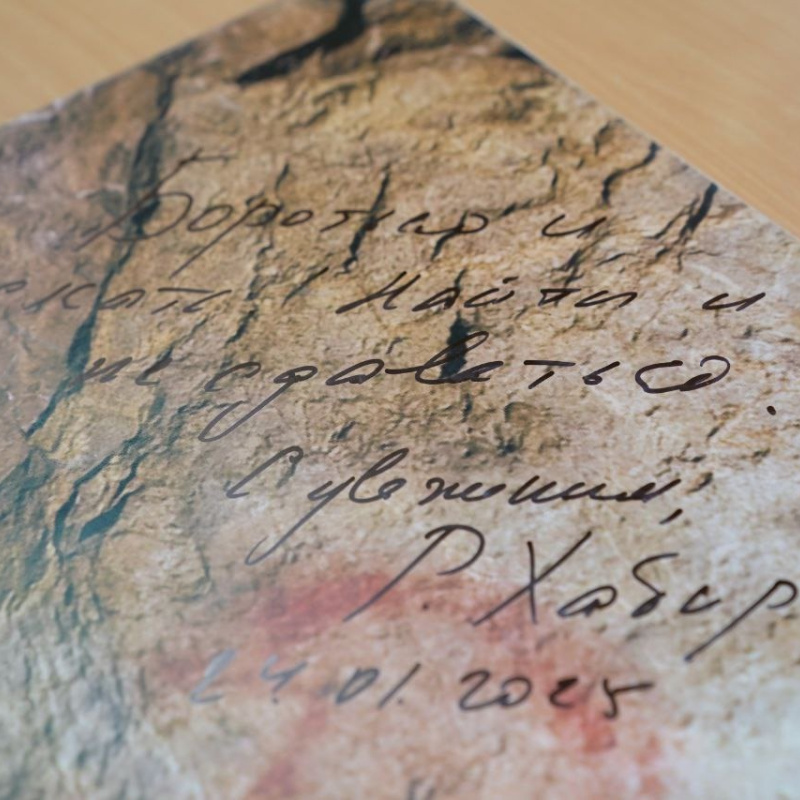 Бороться и
скать! Найти и
не сдаваться.
С уважением,
Р. Хабир
24.01.2025